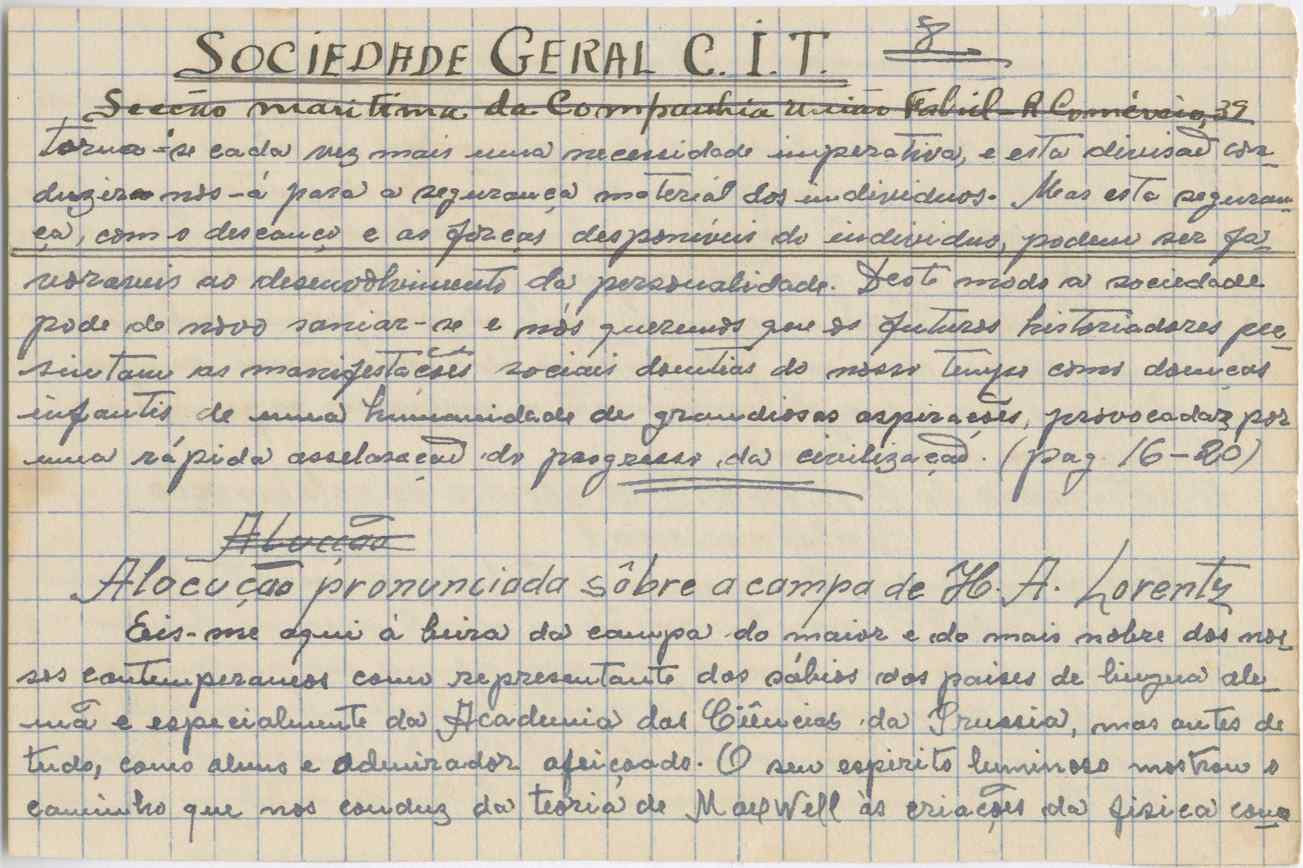 SOCIEDADE GERAL C. I. T. 8
Secção maritima da Companhia União Fabril - R Comércio, 39
torna-se cada vez mais uma necessidade imperativa, e esta divisão con
duzira nos-á para a segurança material dos individuos. Mas esta seguran
ça, como descanço e as fôrças desponíveis do individuo, podem ser fa
voraveis ao desenvolvimento da personalidade. Deste modo a sociedade
pode de novo saniar-se e nós queremos que os futuros historiadores pre
sintam as manifestações sociais doentias do nosso tempo como doenças
infantis de uma humanidade de grandiosas aspirações, provocadas por
uma rápida asselaração do progresso da civilização. (pag. 16-20)
Alocução
Alocução pronunciada sôbre a campa de H. A. Lorentz
Eis-me aqui á beira da campa do maior e do mais nobre dos nos
sos contemperaneos como representante dos sábios dos paises de lingua ale
mã e especialmente da Academia das Ciências da Prussia, mas antes de
tudo, como aluno e admirador afeiçoado. O seu espirito luminoso mostrou o
caminho que nos conduz da teoria de MaxWell às criações da fisica con